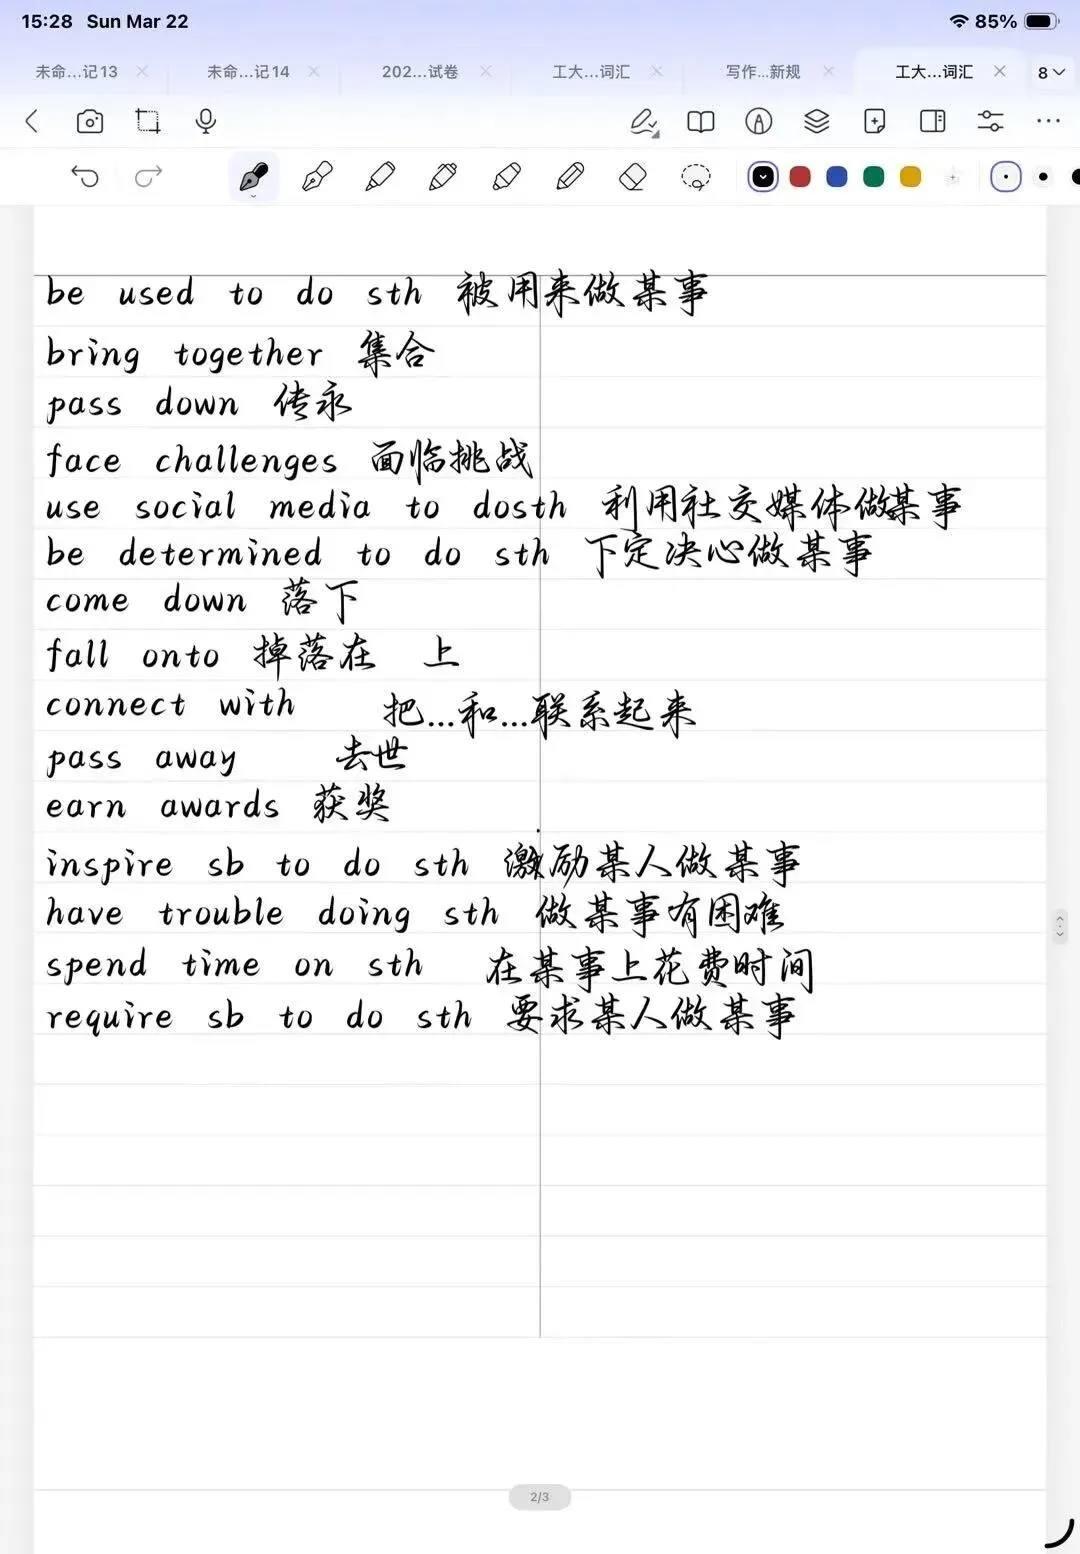 15:28 Sun Mar 22 85%
未命...记13 未命...记14 202...试卷 工大...词汇 写作...新规 工大...词汇 8
be used to do sth 被用来做某事
bring together 集合
pass down 传承
face challenges 面临挑战
use social media to dosth 利用社交媒体做某事
be determined to do sth 下定决心做某事
come down 落下
fall onto 掉落在 上
connect with 把...和...联系起来
pass away 去世
earn awards 获奖
inspire sb to do sth 激励某人做某事
have trouble doing sth 做某事有困难
spend time on sth 在某事上花费时间
require sb to do sth 要求某人做某事
2/3